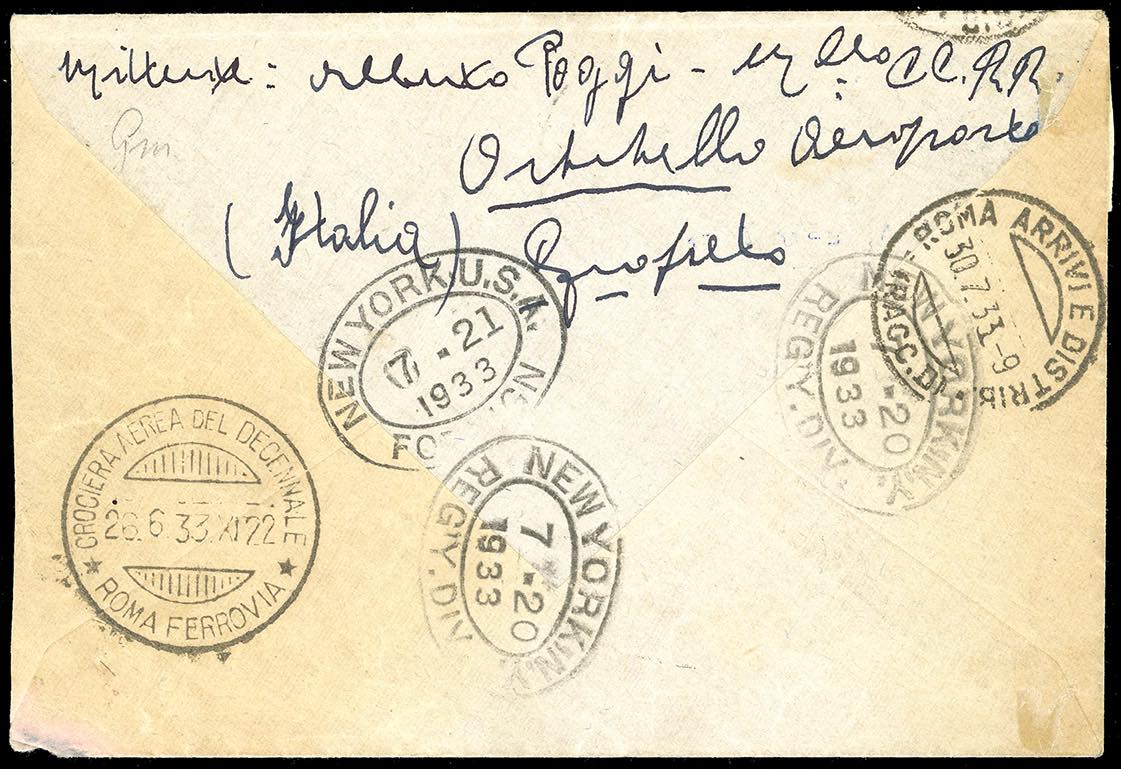 mittente: Alberto Poggi - m/llo CC. RR.
Gm
Orbetello Aeroporto
(Italia) Grosseto
ROMA ARRIVI E DISTRIB.
30.7.33-9
RACC.
NEW YORK U.S.A.
7-21
1933
NEW YORK, N.Y.
7-20
1933
REG'Y. DIV.
CROCIERA AEREA DEL DECENNALE
26.6 33.XI 22
ROMA FERROVIA
NEW YORK, N.Y.
7-20
1933
REG'Y. DIV.